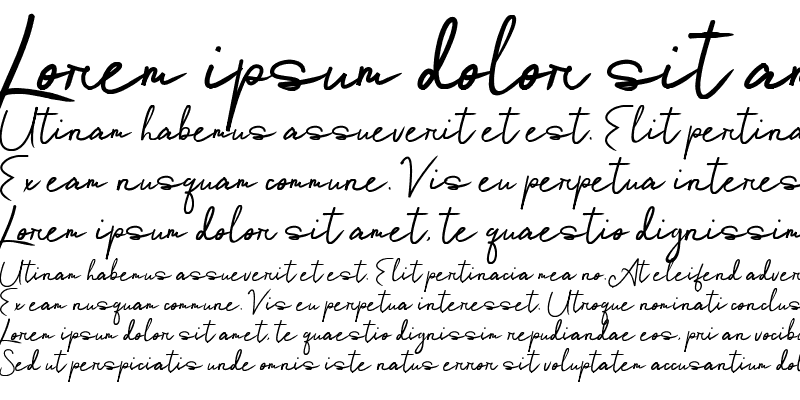 Lorem ipsum dolor sit am
Utinam habemus assueverit et est. Elit pertina
Ex eam nusquam commune. Vis eu perpetua interes
Lorem ipsum dolor sit amet, te quaestio dignissim
Utinam habemus assueverit et est. Elit pertinacia mea no. At eleifend adver
Ex eam nusquam commune. Vis eu perpetua interesset. Utroque nominati conclus
Lorem ipsum dolor sit amet, te quaestio dignissim repudiandae eos, pri an vocibu
Sed ut perspiciatis unde omnis iste natus error sit voluptatem accusantium dol